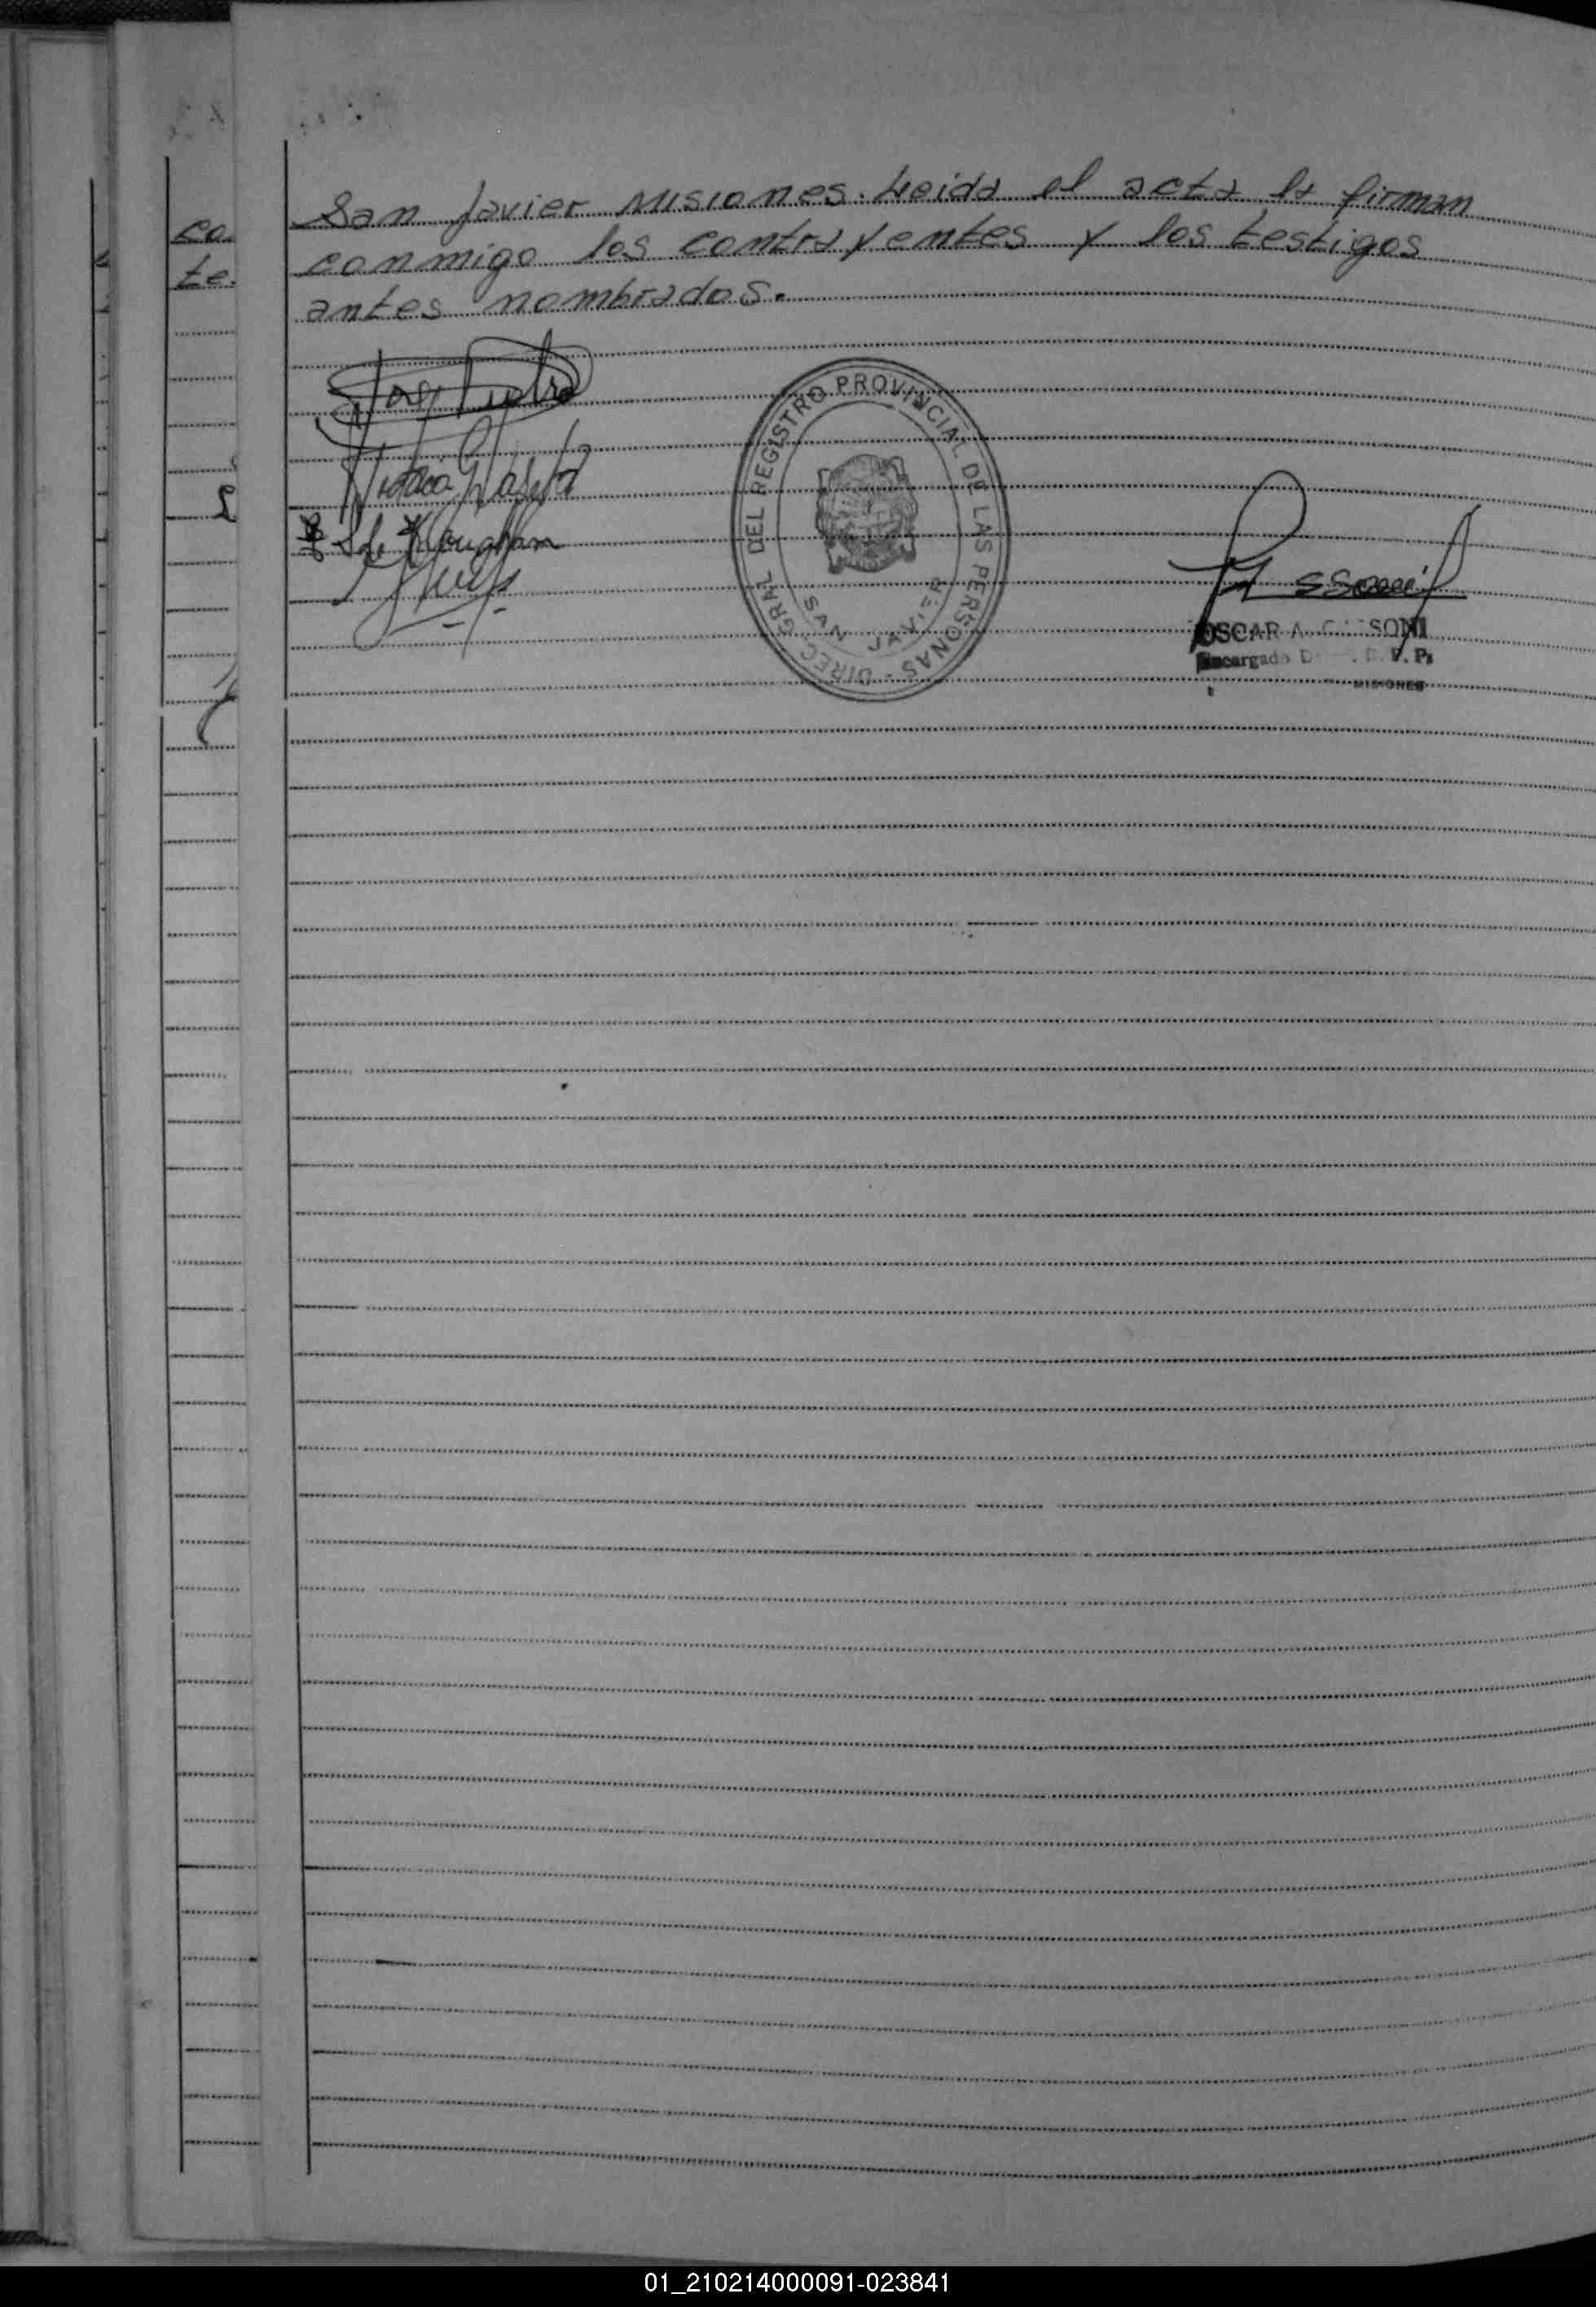 San Javier Misiones. Leida el acta la firman
conmigo los contrayentes y los testigos
antes nombrados.
DIREC. GRAL. DEL REGISTRO PROVINCIAL DE LAS PERSONAS -
SAN JAVIER
OSCAR A.
Encargado
MISIONES
co.
te.
01_210214000091-023841